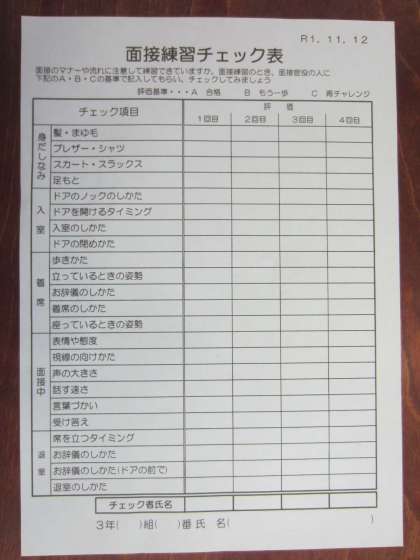 R1. 11. 12
面接練習チェック表
面接のマナーや流れに注意して練習できていますか。面接練習のとき、面接官役の人に
下記のA・B・Cの基準で記入してもらい、チェックしてみましょう
評価基準・・・A 合格 B もう一歩 C 再チャレンジ
チェック項目 評 価
1回目 2回目 3回目 4回目
身だしなみ
髪・まゆ毛
ブレザー・シャツ
スカート・スラックス
足もと
入室
ドアのノックのしかた
ドアを開けるタイミング
入室のしかた
ドアの閉めかた
着席
歩きかた
立っているときの姿勢
お辞儀のしかた
着席のしかた
座っているときの姿勢
面接中
表情や態度
視線の向けかた
声の大きさ
話す速さ
言葉づかい
受け答え
退室
席を立つタイミング
お辞儀のしかた
お辞儀のしかた(ドアの前で)
退室のしかた
チェック者氏名
3年( )組( )番 氏 名( )